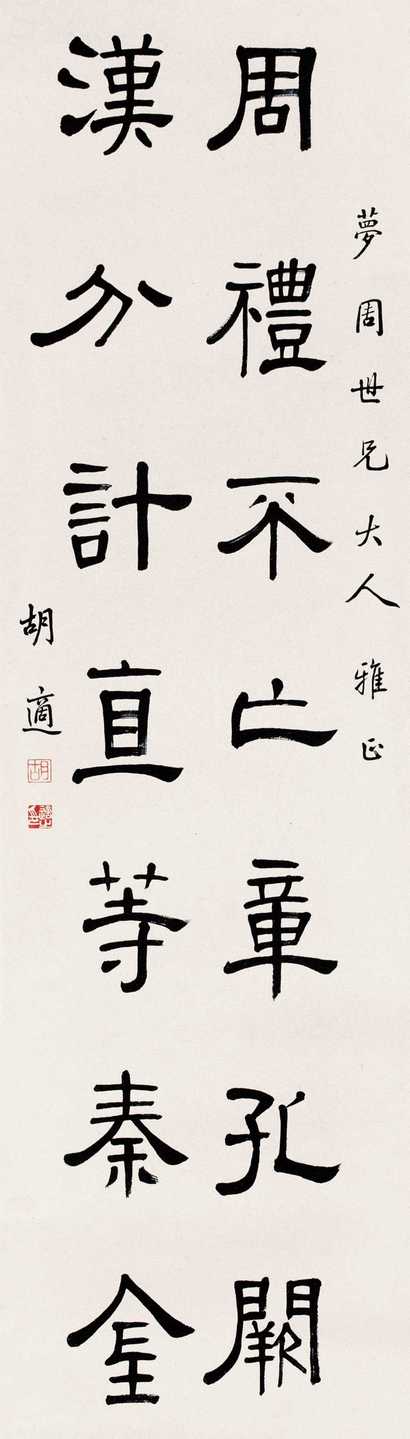 夢周世兄大人 雅正
周禮不亡章孔闕
漢分計直等秦金
胡適
胡